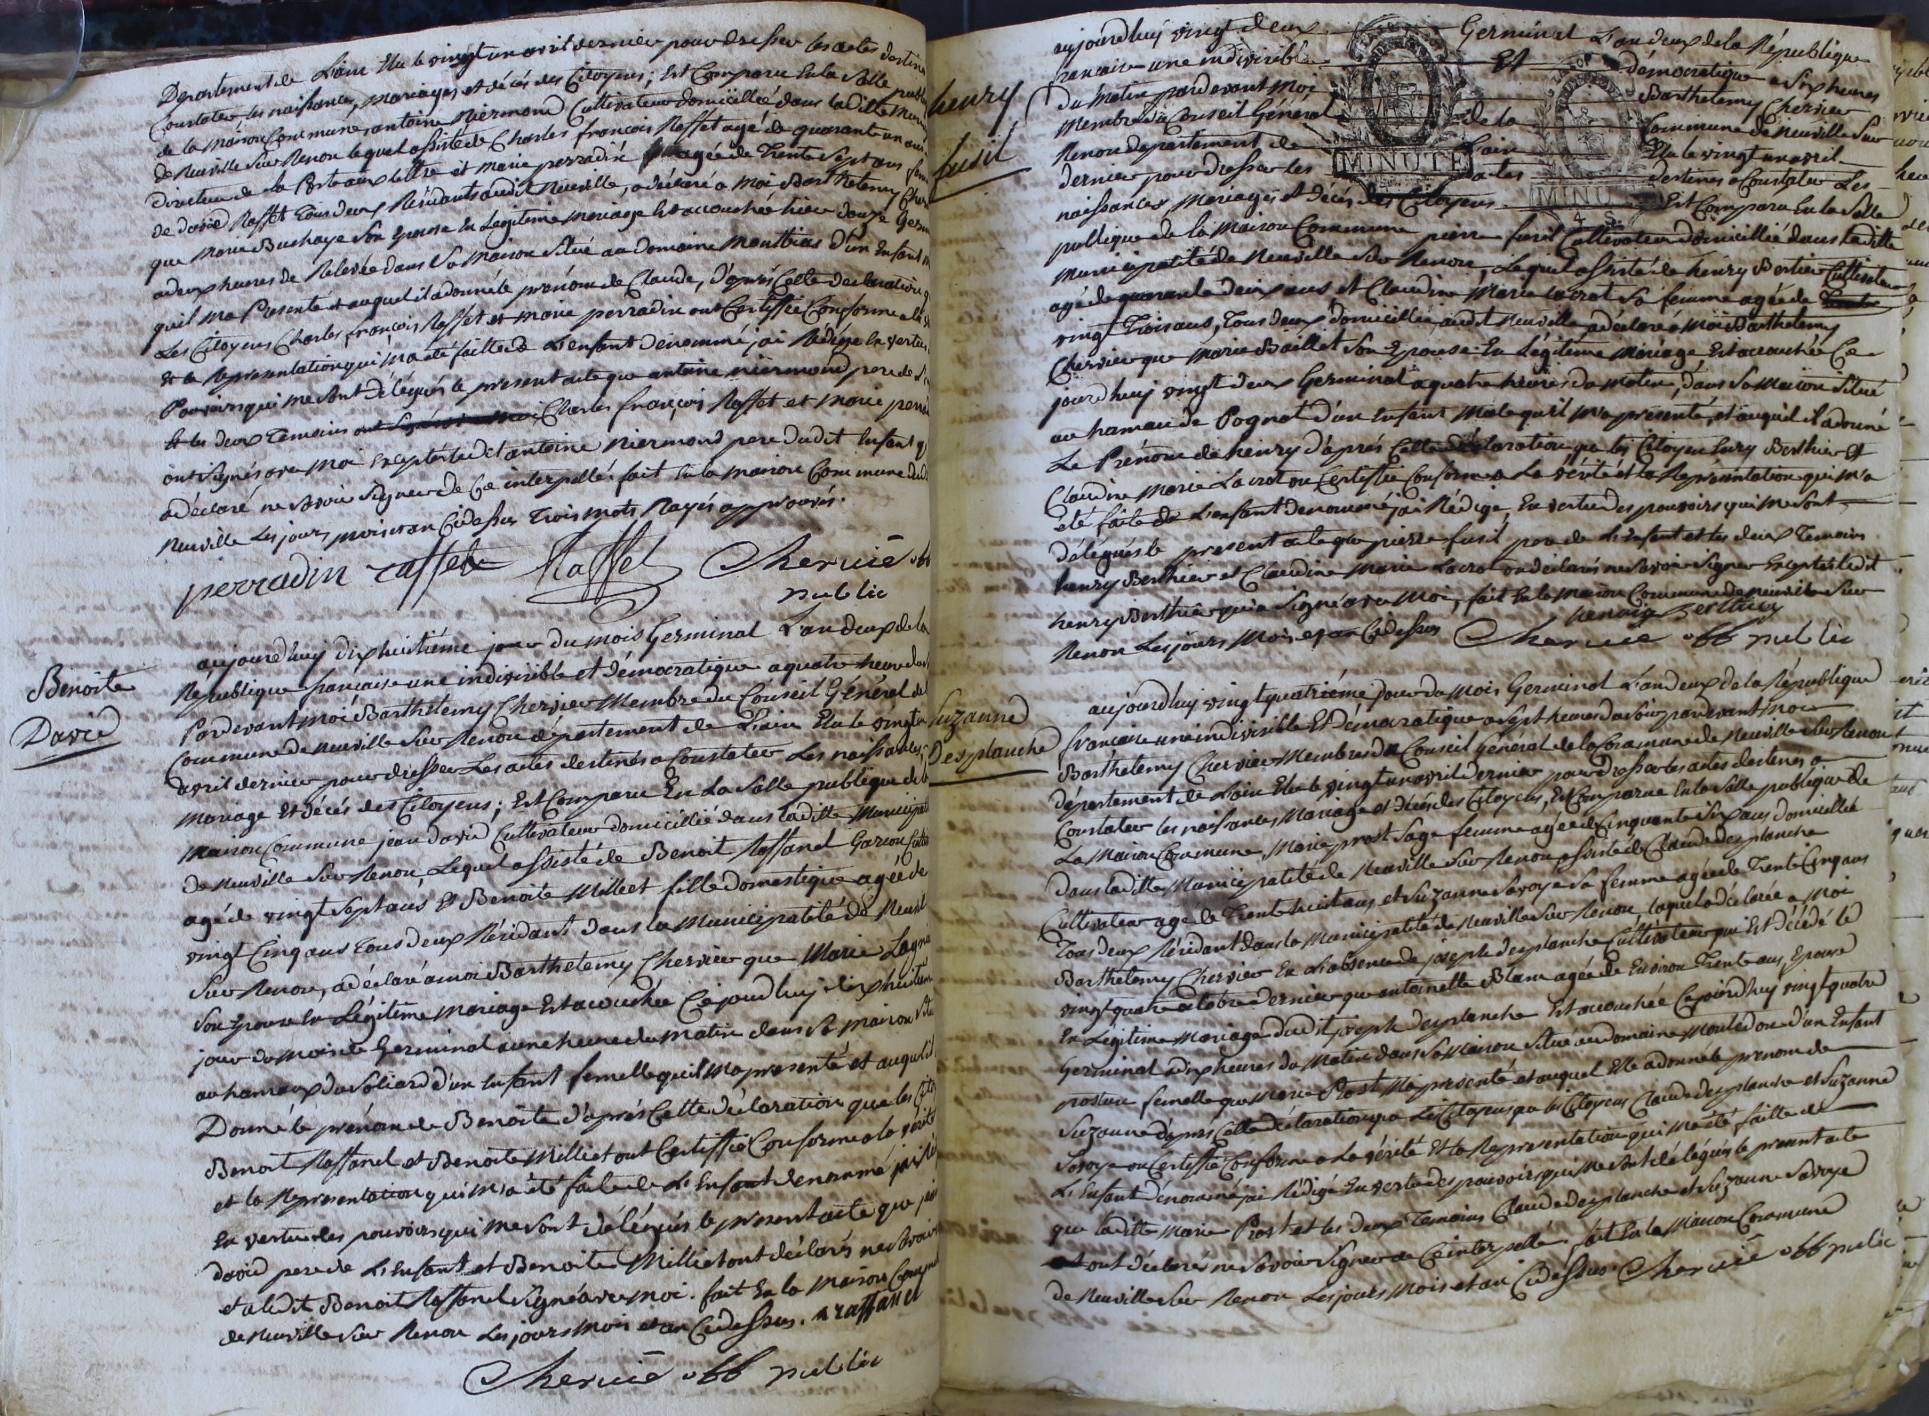 Département de L'ain Elu le vingt un avril dernier pour dresser les actes destinés
Constater les naissances, mariages et décès des Citoyens; Est Comparu En la Salle publ
de la maison Commune, antoine Niermond Cultivateur domicillié dans ladite Muni
de Neuville Sur Renon lequel assisté de Charles françois Raffet agé de quarante un ans
directeur de la Poste aux lettre et marie perradin agée de Trente Sept ans fem
de david Raffet Tous deux Résidants audit Neuville, a déclaré a Moi Barthelemy Cher
que Marie Buchaye Son Epouse En Legitime mariage Est accouchée hier douze Germ
a deux heures de Relevée dans Sa Maison Situé au domaine Monthias d'un Enfant
qu'il Ma Presenté et auquel il a donné le prénom de Claude, d'après Cette declaration q
Les Citoyens Charles françois Raffet et marie perradin ont Certiffié Conforme a la
et la Representation qui m'a été faitte de L'enfant denommé j'ai Rédigé En vertu
Pouvoirs qui me sont délégués le present acte que antoine niermond pere de
et les deux Temoins Charles françois Raffet et marie perra
ont Signés avec Moi Excepté ledit antoine Niermond pere dudit Enfant q
a déclaré ne Savoir Signer de Ce interpellé. fait En la maison Commune dud
Neuville Les jours, mois et an Cidessus Trois mots Rayés approuvés.
perradin raffet Raffet Chervié off
public
Benoite
David
aujourdhuy dix huitième jour du mois Germinal L'an deux de la
République françaisse une indivisible et démocratique a quatre heure du
Pardevant moi Barthelemy Chervier Membre du Conseil Général de l
Commune de Neuville Sur Renon département de L'ain Elu le vingt un
avril dernier pour dresser Les actes destinés a Constater Les naissances,
mariage Et décès des Citoyens; Est Comparu En La Salle publique de l
maison Commune jean david Cultivateur domicillié dans ladite Municipal
de Neuville Sur Renon, Lequel assisté de Benoit Raffanel Garçon Cultiv
agé de vingt Sept ans Et Benoite Milliet fille domestique agée de
vingt Cinq ans Tous deux Résidant dans la Municipalité de Neuvil
Sur Renon, a déclaré a moi Barthelemy Chervier que Marie
Son Epouse En Légitime mariage Est accouchée Cejourdhuy dix huitieme
jour du mois de Germinal a une heure du matin dans Sa maison Situ
au hameaux du Soliard d'un Enfant femelle qu'il Ma presenté et auquel il
Donné le prénom de Benoite d'après Cette déclaration que les Cito
Benoit Raffanel et Benoite Milliet ont Certiffié Conforme a la vérité
et la Représentation qui m'a été faite de L'Enfant denommé j'ai Ré
En vertu des pouvoirs qui me sont délégués le present acte que je
david pere de L'Enfant et Benoite Milliet ont déclarés ne Savoir
et a ledit Benoit Raffanel Signé avec moi. fait En la maison Commun
de Neuville Sur Renon Les jours Mois et an Cidessus. raffanel
Chervié off public
henry
fusil
aujourdhuy vingt deux Germinal L'an deux de la République
francaise une indivisible Et démocratique a Six heures
du Matin pardevant Moi Barthelemy Chervier
Membre du Conseil Général de la Commune de Neuville Sur
Renon département de L'ain Elu le vingt un avril
dernier pour dresser les actes destinés a Constater Les
MINUTE
MINU
4 S.
naissances Mariages Et décès des Citoyens Est Comparu En la Salle
publique de la Maison Commune pierre fusil Cultivateur domicillié dans ladite
Municipalité de Neuville Sur Renon, Lequel assisté de henry Bertier Cultivateur
agé de quarante deux ans et Claudine Marie Lacrot Sa femme agée de
vingt Trois ans, Tous deux domicilliés audit Neuville a déclaré a Moi Barthelemy
Chervier que Marie Baillet Son Epouse En Légitime Mariage Est accouchée Ce
jourdhuy vingt deux Germinal a quatre heures du Matin, dans Sa Maison Situé
au hameau de Pognat d'un Enfant Male qu'il m'a presenté, et auquel il a donné
Le Prénom de henry d'après Cette déclaration que les Citoyen henry Berthier Et
Claudine Marie Lacrot on Certiffié Conforme a La vérité et la Représentation qui m'a
été faite de L'enfant denommé j'ai Rédigé, En vertu des pouvoirs qui me Sont
délégués le present acte que pierre fusil pere de L'Enfant et les deux Temoins
henry Berthier et Claudine Marie Lacro on déclarés ne Savoir Signer Excepté ledit
henry Berthier qui a Signé avec Moi, fait En la maison Commune de neuville Sur
Renon Les jours Mois et an Cidessus
Chervié off public
Suzanne
Desplanche
aujourdhuy vingt quatrième jour du Mois Germinal L'an deux de la République
francaise une indivisible Et Démocratique a Sept heures du Soir pardevant Moi
Barthelemy Chervier Membres du Conseil Général de la Commune de Neuville Sur Renon
département de L'ain Elu le vingt un avril dernier pour dresser les actes destinés a
Constater les naissances Mariage et décès des Citoyens, Est Comparue En la Salle publique de
La Maison Commune, Marie prost Sage femme agée de Cinquante Six ans domicillié
dans ladite Municipalité de Neuville Sur Renon assisté de Claude desplanche
Cultivateur agé de Trente huit ans, et Suzanne Savoye Sa femme agée de Trente Cinq ans
Tous deux Résidant dans la Municipalité de Neuville Sur Renon laquel a déclarée a Moi
Barthelemy Chervier En L'absence de joseph desplanche Cultivateur qui Est décédé le
vingt quatre octobre dernier que antoinette Blanc agée de Environ Trente ans, Epouse
En Légitime Mariage dudit joseph desplanche Est accouchée Cejourdhuy vingt quatre
Germinal a dix heures du Matin dans Sa Maison Situé au domaine Montedou d'un Enfant
postume femelle que Marie Prost M'a presenté et auquel Elle a donné le prenom de
Suzanne d'après Cette déclaration que Les Citoyens que les Citoyens Claude desplanche et Suzanne
Savoye on Certiffié Conforme a La vérité Et la Representation qui M'a été faitte de
L'Enfant dénommé j'ai Rédigé En vertu des pouvoirs qui Me Sont délégués le present acte
que ladite Marie Prost et les deux Temoins Claude desplanche et Suzanne Savoye
ont déclarés ne Savoir Signer de Ce interpellé, fait En la Maison Commune
de Neuville Sur Renon Les jours Mois et an Cidessus. Chervié off public